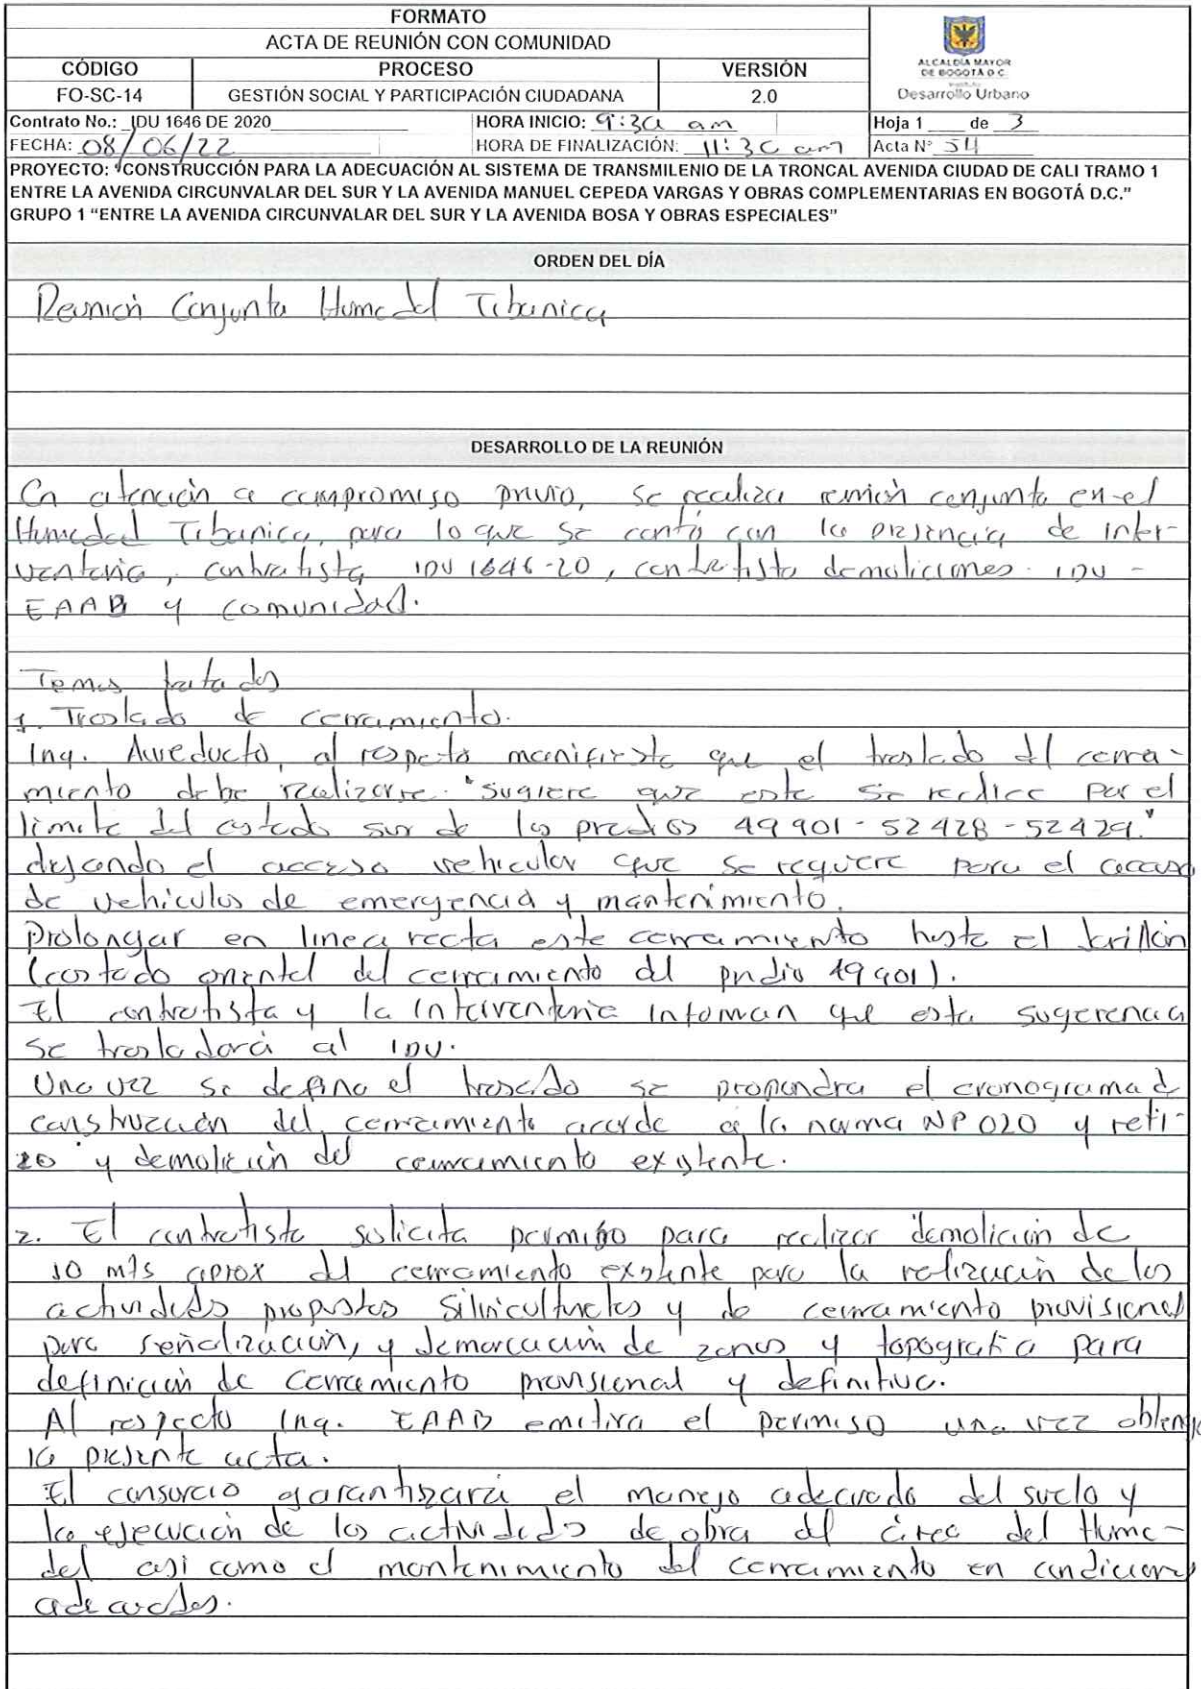 FORMATO
ACTA DE REUNIÓN CON COMUNIDAD
CÓDIGO PROCESO VERSIÓN
FO-SC-14 GESTIÓN SOCIAL Y PARTICIPACIÓN CIUDADANA 2.0
ALCALDÍA MAYOR
DE BOGOTÁ D.C.
Desarrollo Urbano
Contrato No.: IDU 1646 DE 2020 HORA INICIO: 9:30 am Hoja 1 de 3
FECHA: 08/06/22 HORA DE FINALIZACIÓN: 11:30 am Acta N° 54
PROYECTO: "CONSTRUCCIÓN PARA LA ADECUACIÓN AL SISTEMA DE TRANSMILENIO DE LA TRONCAL AVENIDA CIUDAD DE CALI TRAMO 1
ENTRE LA AVENIDA CIRCUNVALAR DEL SUR Y LA AVENIDA MANUEL CEPEDA VARGAS Y OBRAS COMPLEMENTARIAS EN BOGOTÁ D.C."
GRUPO 1 "ENTRE LA AVENIDA CIRCUNVALAR DEL SUR Y LA AVENIDA BOSA Y OBRAS ESPECIALES"
ORDEN DEL DÍA
Reunión Conjunta Humedal Tibanica
DESARROLLO DE LA REUNIÓN
En atención a compromiso previo, se realiza reunión conjunta en el
Humedal Tibanica, para lo que se contó con la presencia de inter-
ventoria, contratista IDU 1646-20, contratista demoliciones. IDU -
EAAB y comunidad.
Temas tratados
1. Traslado de cerramiento.
Ing. Acueducto, al respecto manifiesta que el traslado del cerra-
miento debe realizarse. "sugiere que este se realice por el
limite del costado sur de los predios 49901-52428-52429."
dejando el acceso vehicular que se requiere para el acceso
de vehiculos de emergencia y mantenimiento.
Prolongar en linea recta este cerramiento hasta el Jarillón
(costado oriental del cerramiento del predio 49901).
El contratista y la Interventoria informan que esta sugerencia
se trasladará al IDU.
Una vez se defina el traslado se propondra el cronograma d
construcción del cerramiento acorde a la norma NP020 y reti-
ro y demolición del cerramiento existente.
2. El contratista solicita permiso para realizar demolición de
10 mts aprox del cerramiento existente para la realización de las
actividades propuestas silviculturales y de cerramiento provisional
para señalización, y demarcación de zonas y topografia para
definición de cerramiento provisional y definitivo.
Al respecto Ing. EAAB emitira el permiso una vez obtenga
la presente acta.
El consorcio garantizará el manejo adecuado del suelo y
la ejecución de las actividades de obra del área del Hume-
dal asi como el mantenimiento del cerramiento en condiciones
adecuadas.